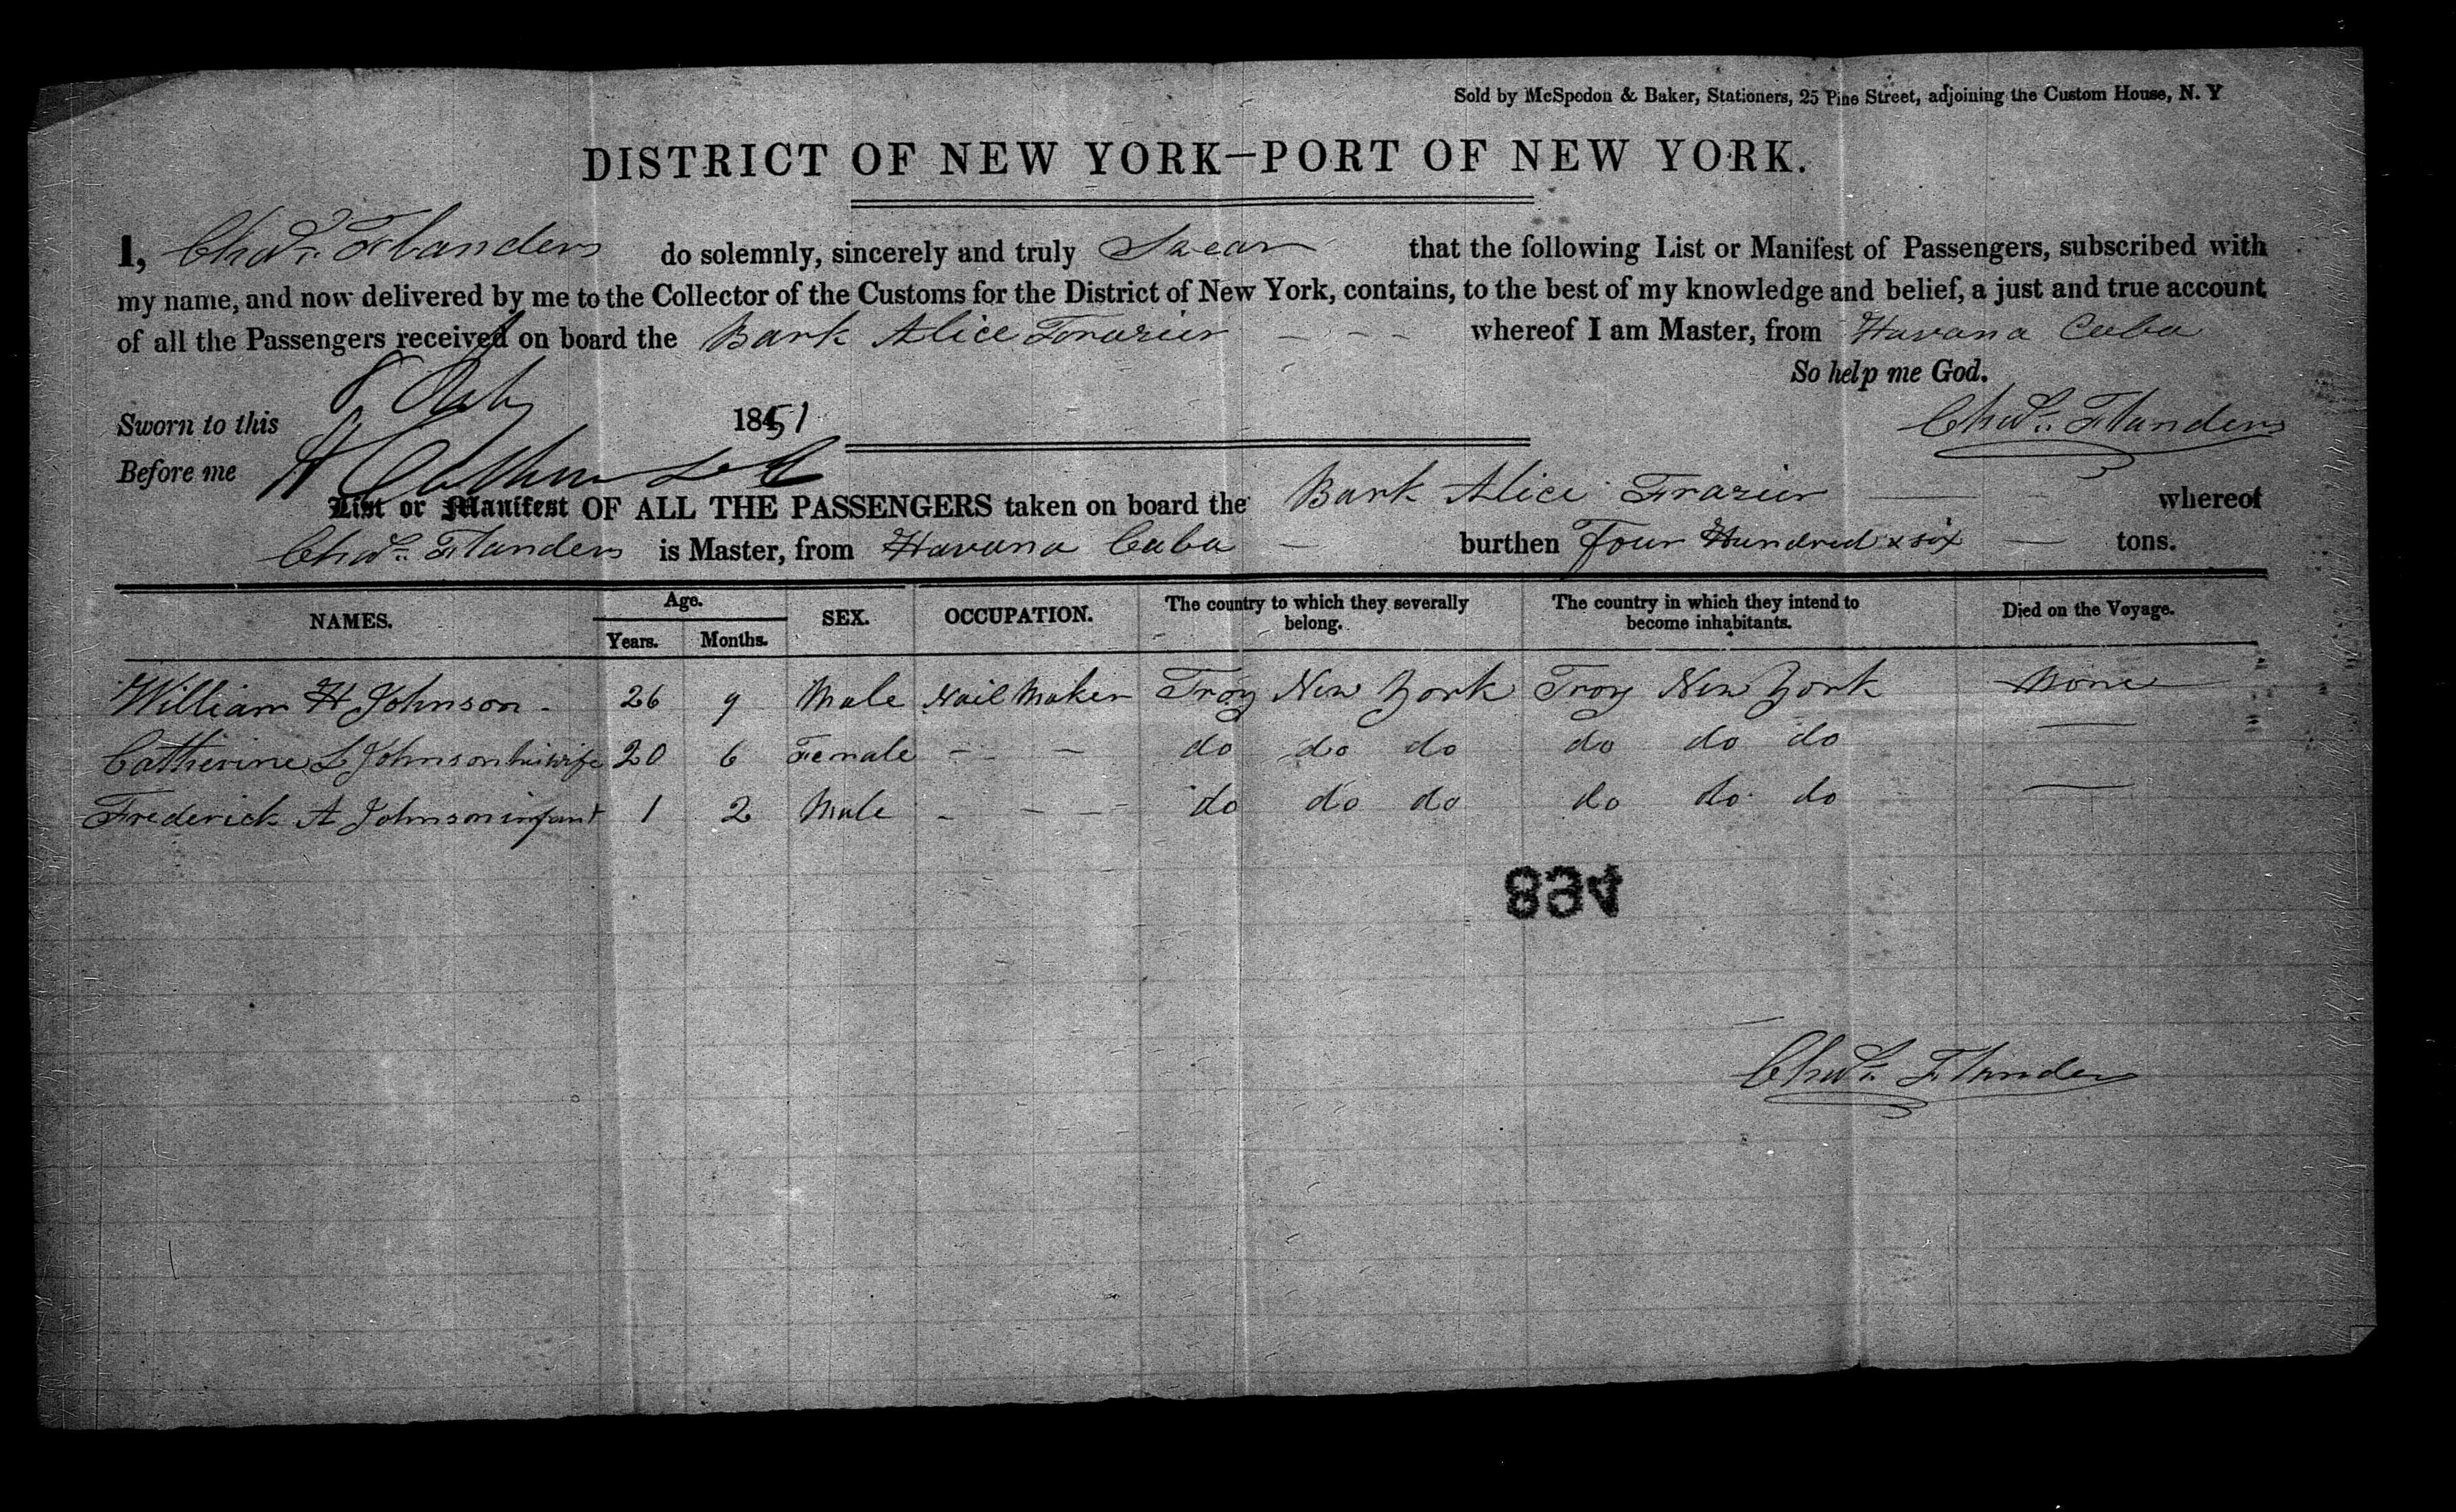 Sold by McSpedon & Baker, Stationers, 25 Pine Street, adjoining the Custom House, N. Y
DISTRICT OF NEW YORK—PORT OF NEW YORK.
I, Chas. Flanders do solemnly, sincerely and truly Swear that the following List or Manifest of Passengers, subscribed with
my name, and now delivered by me to the Collector of the Customs for the District of New York, contains, to the best of my knowledge and belief, a just and true account
of all the Passengers received on board the Bark Alice Frazier whereof I am Master, from Havana Cuba
So help me God.
Sworn to this 8 1851
Chas. Flanders
Before me
List or Manifest OF ALL THE PASSENGERS taken on board the Bark Alice Frazier whereof
Chas. Flanders is Master, from Havana Cuba burthen Four Hundred & six tons.
NAMES. Age. Years. Months. SEX. OCCUPATION. The country to which they severally belong. The country in which they intend to become inhabitants. Died on the Voyage.
William H Johnson 26 9 Male Nail Maker Troy New York Troy New York None
Catherine L Johnson his wife 20 6 Female – – do do do do do do —
Frederick A Johnson infant 1 2 Male – – – do do do do do do —
834
Chas. Flanders